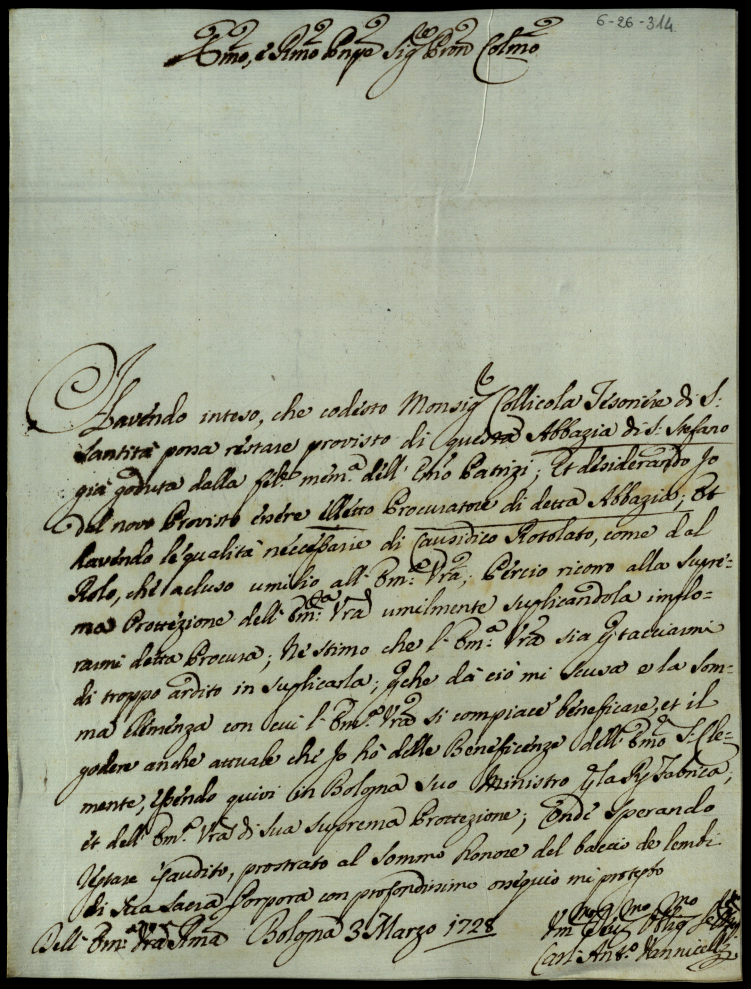 6-26-314
Emo, e Rmo Pnpe Sig Pron Colmo
Havendo inteso, che codesto Monsig Collicola Tesoriere di S:
Santità possa restare provisto di questa Abbazia di S: Stefano
già goduta dalla fel: mem:a dell' Emo Patrizi; Et desiderando Jo
dal novo Provisto essere eletto Procuratore di detta Abbazia; Et
havendo le qualità neccessarie di Causidico Rotolato, come dal
Rolo, che acluso umilio all' Em:a Vra; Perciò ricorro alla Supre=
ma Protezzione dell' Em:a Vra umilmente suplicandola implo=
rarmi detta Procura; Nè stimo che l' Em:a Vra sia p tacciarmi
di troppo ardito in suplicarla; pche da ciò mi scusa e la som=
ma clemenza con cui l' Em:a Vra si compiace beneficare, et il
godere anche attuale che Jo hò delle Beneficenze dell' Emo S: Cle=
mente, essendo quivi in Bologna suo Ministro p la R: Fabrica;
et dell' Em:a Vra di sua suprema Protezzione; Onde sperando
restare esaudito, prostrato al sommo honore del baccio de lembi
di sua Sacra Porpora con profondissimo ossequio mi protesto
Dell' Em:a Vra Rma Bologna 3 Marzo 1728
Um Dev Oblig Ser
Carl' Ant:o Vannicelli